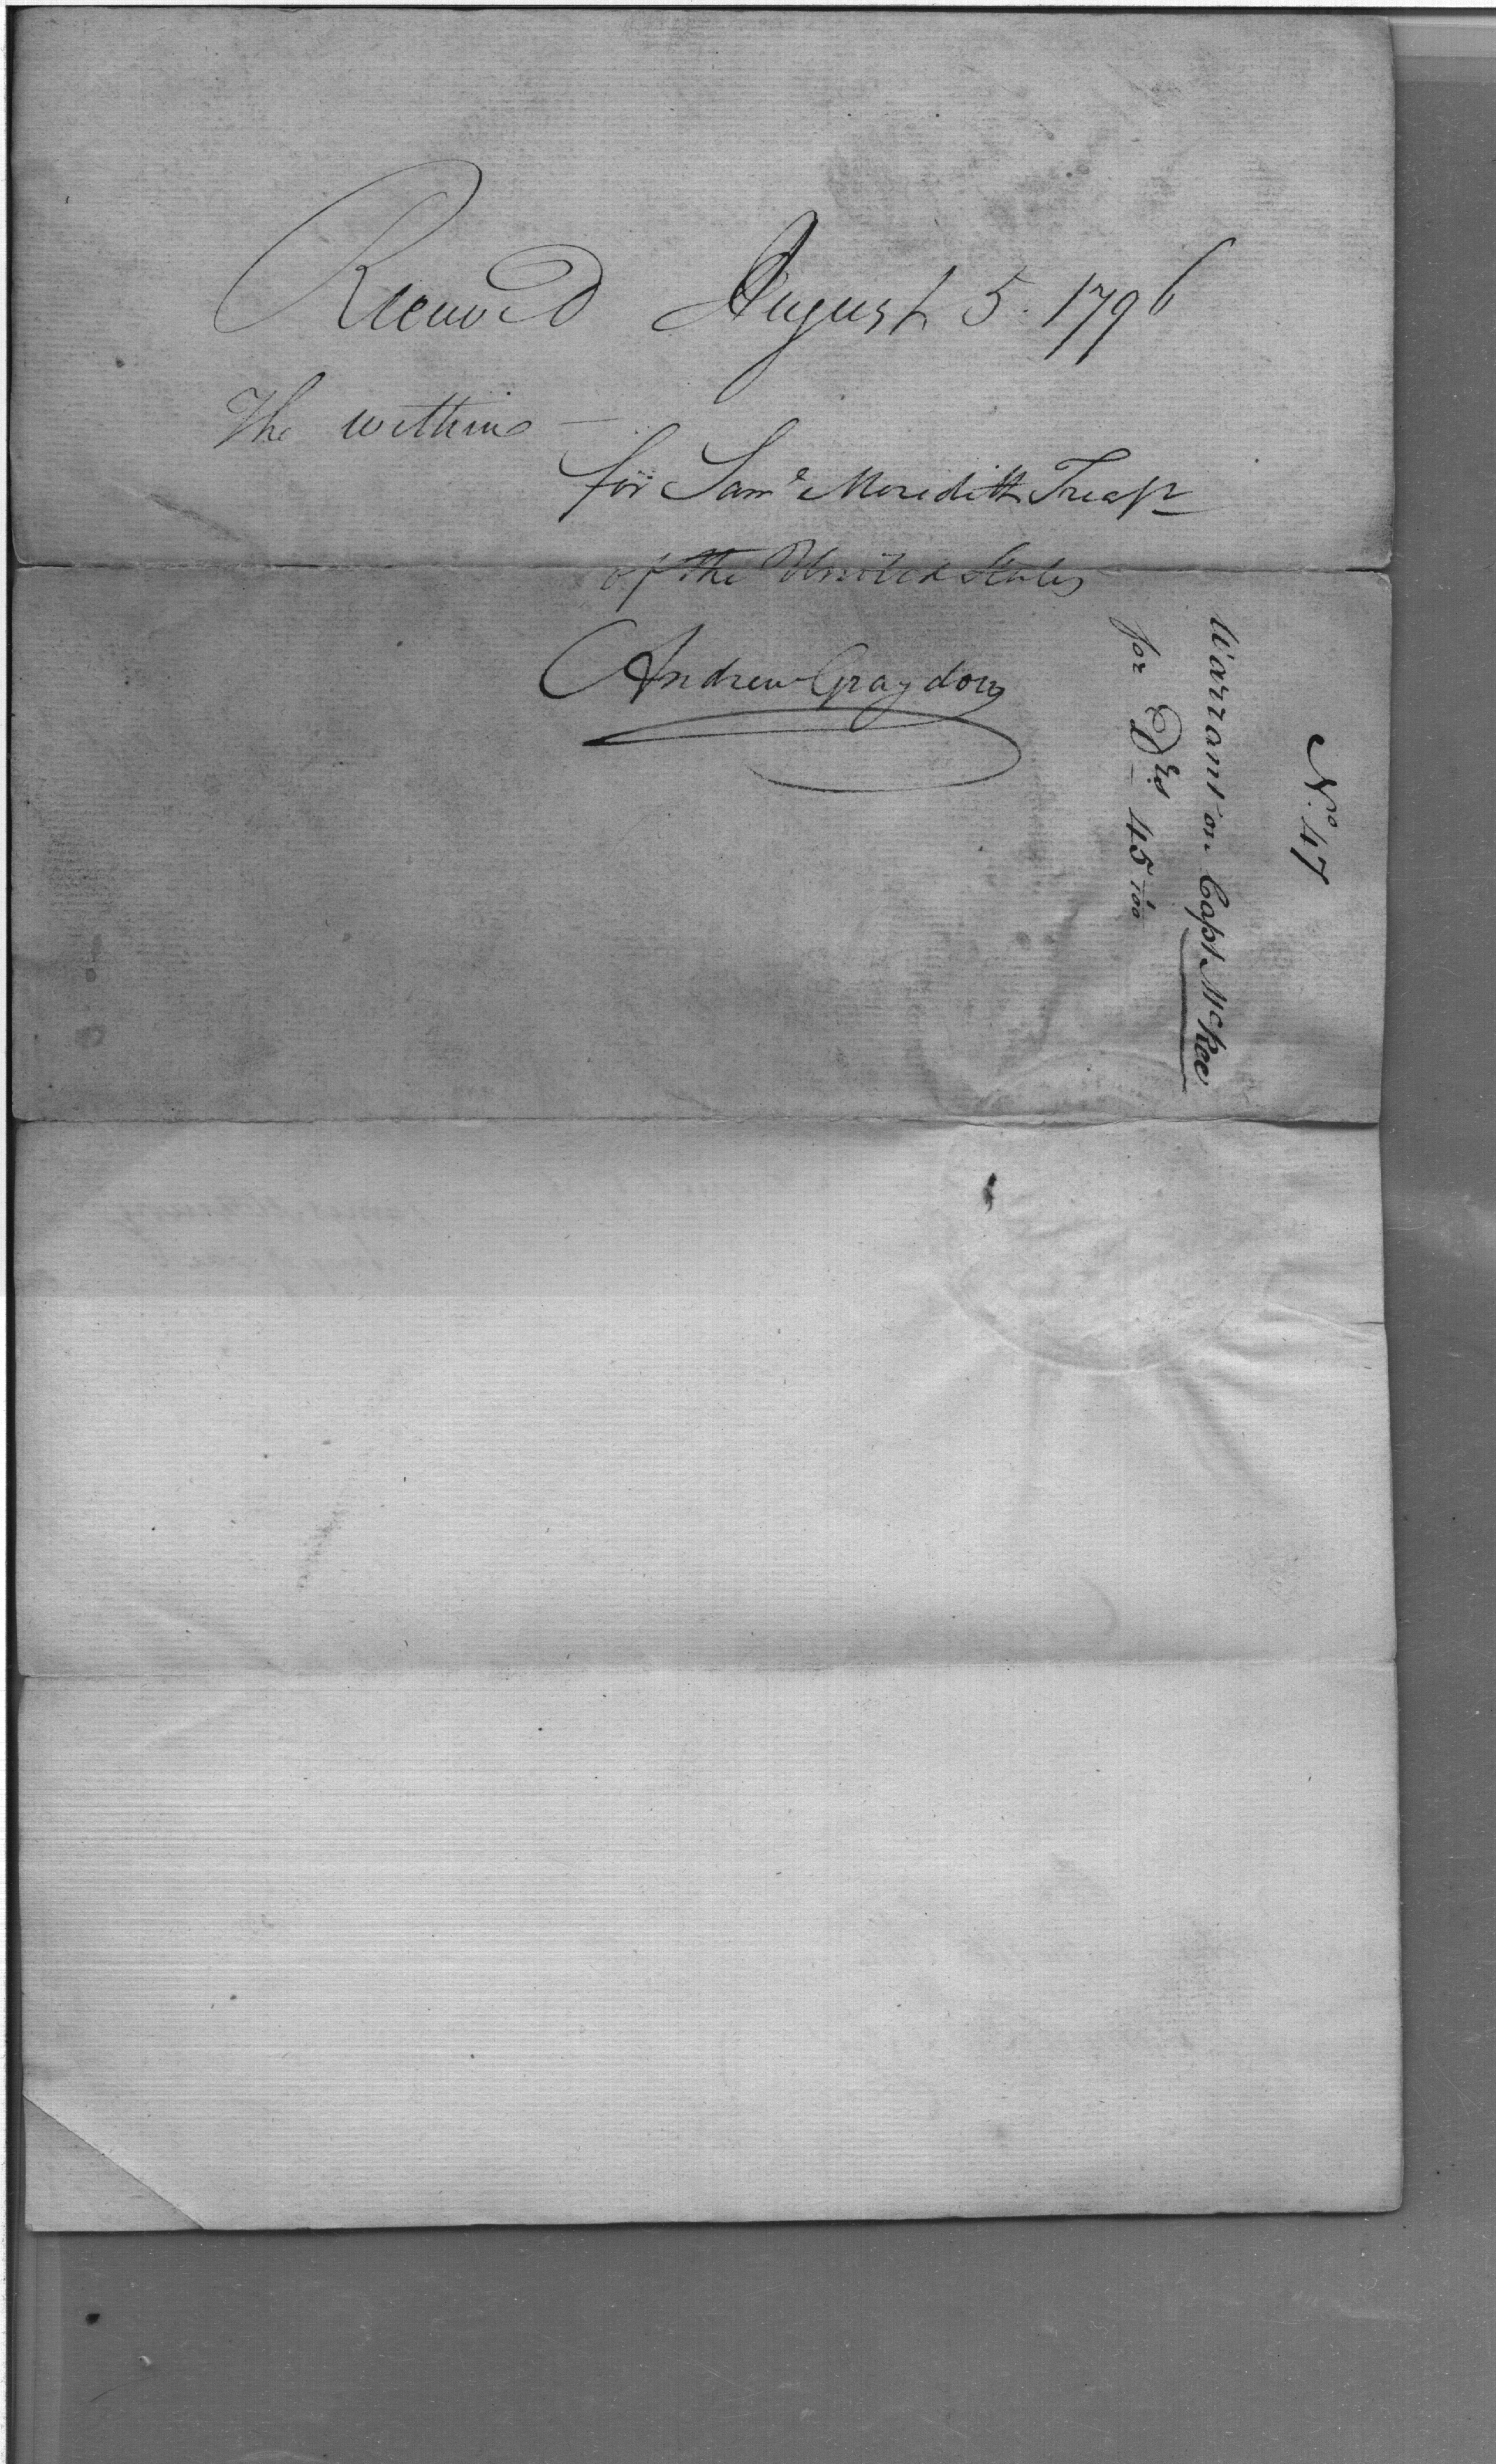 Received August 5. 1796
The within —
for Saml Meredith Treasr
of the United States
Andrew Graydon
No. 47
Warrant on Capt. McKee
for Drs 45 /100